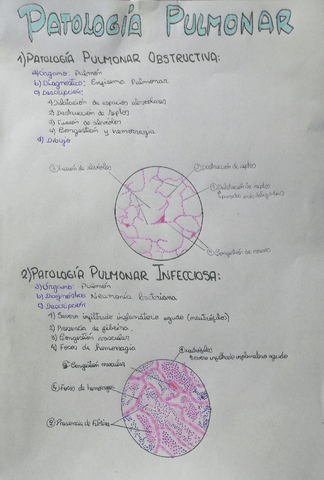 PATOLOGÍA PULMONAR
1) PATOLOGÍA PULMONAR OBSTRUCTIVA:
a) Órgano: Pulmón
b) Diagnóstico: Enfisema Pulmonar
c) Descripción:
1) Dilatación de espacios alveolares
2) Destrucción de septos
3) Fusión de alvéolos
4) Congestión y hemorragia
d) Dibujo
③ Fusión de alvéolos
② Destrucción de septos
① Dilatación de septos
④ Congestión de vasos
2) PATOLOGÍA PULMONAR INFECCIOSA:
a) Órgano: Pulmón
b) Diagnóstico: Neumonía bacteriana
c) Descripción
1) Severo infiltrado inflamatorio agudo (neutrófilos)
2) Presencia de fibrina
3) Congestión vascular
4) Focos de hemorragia
① Neutrófilos
severo infiltrado inflamatorio agudo
③ Congestión vascular
④ Focos de hemorragia
② Presencia de fibrina